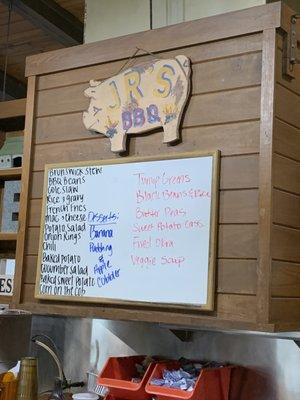 JR'S
BBQ
Brunswick Stew
BBQ Beans
Cole Slaw
Rice & gravy
French Fries
Mac & Cheese
Potato Salad
Onion Rings
Chili
Baked Potato
Cucumber Salad
Baked Sweet Potato
Corn on the Cob
Desserts:
Banana
Pudding
&
Apple
Cobbler
Turnip Greens
Black Beans & Rice
Butter Peas
Sweet Potato Cass.
Fried Okra
Veggie Soup
ES